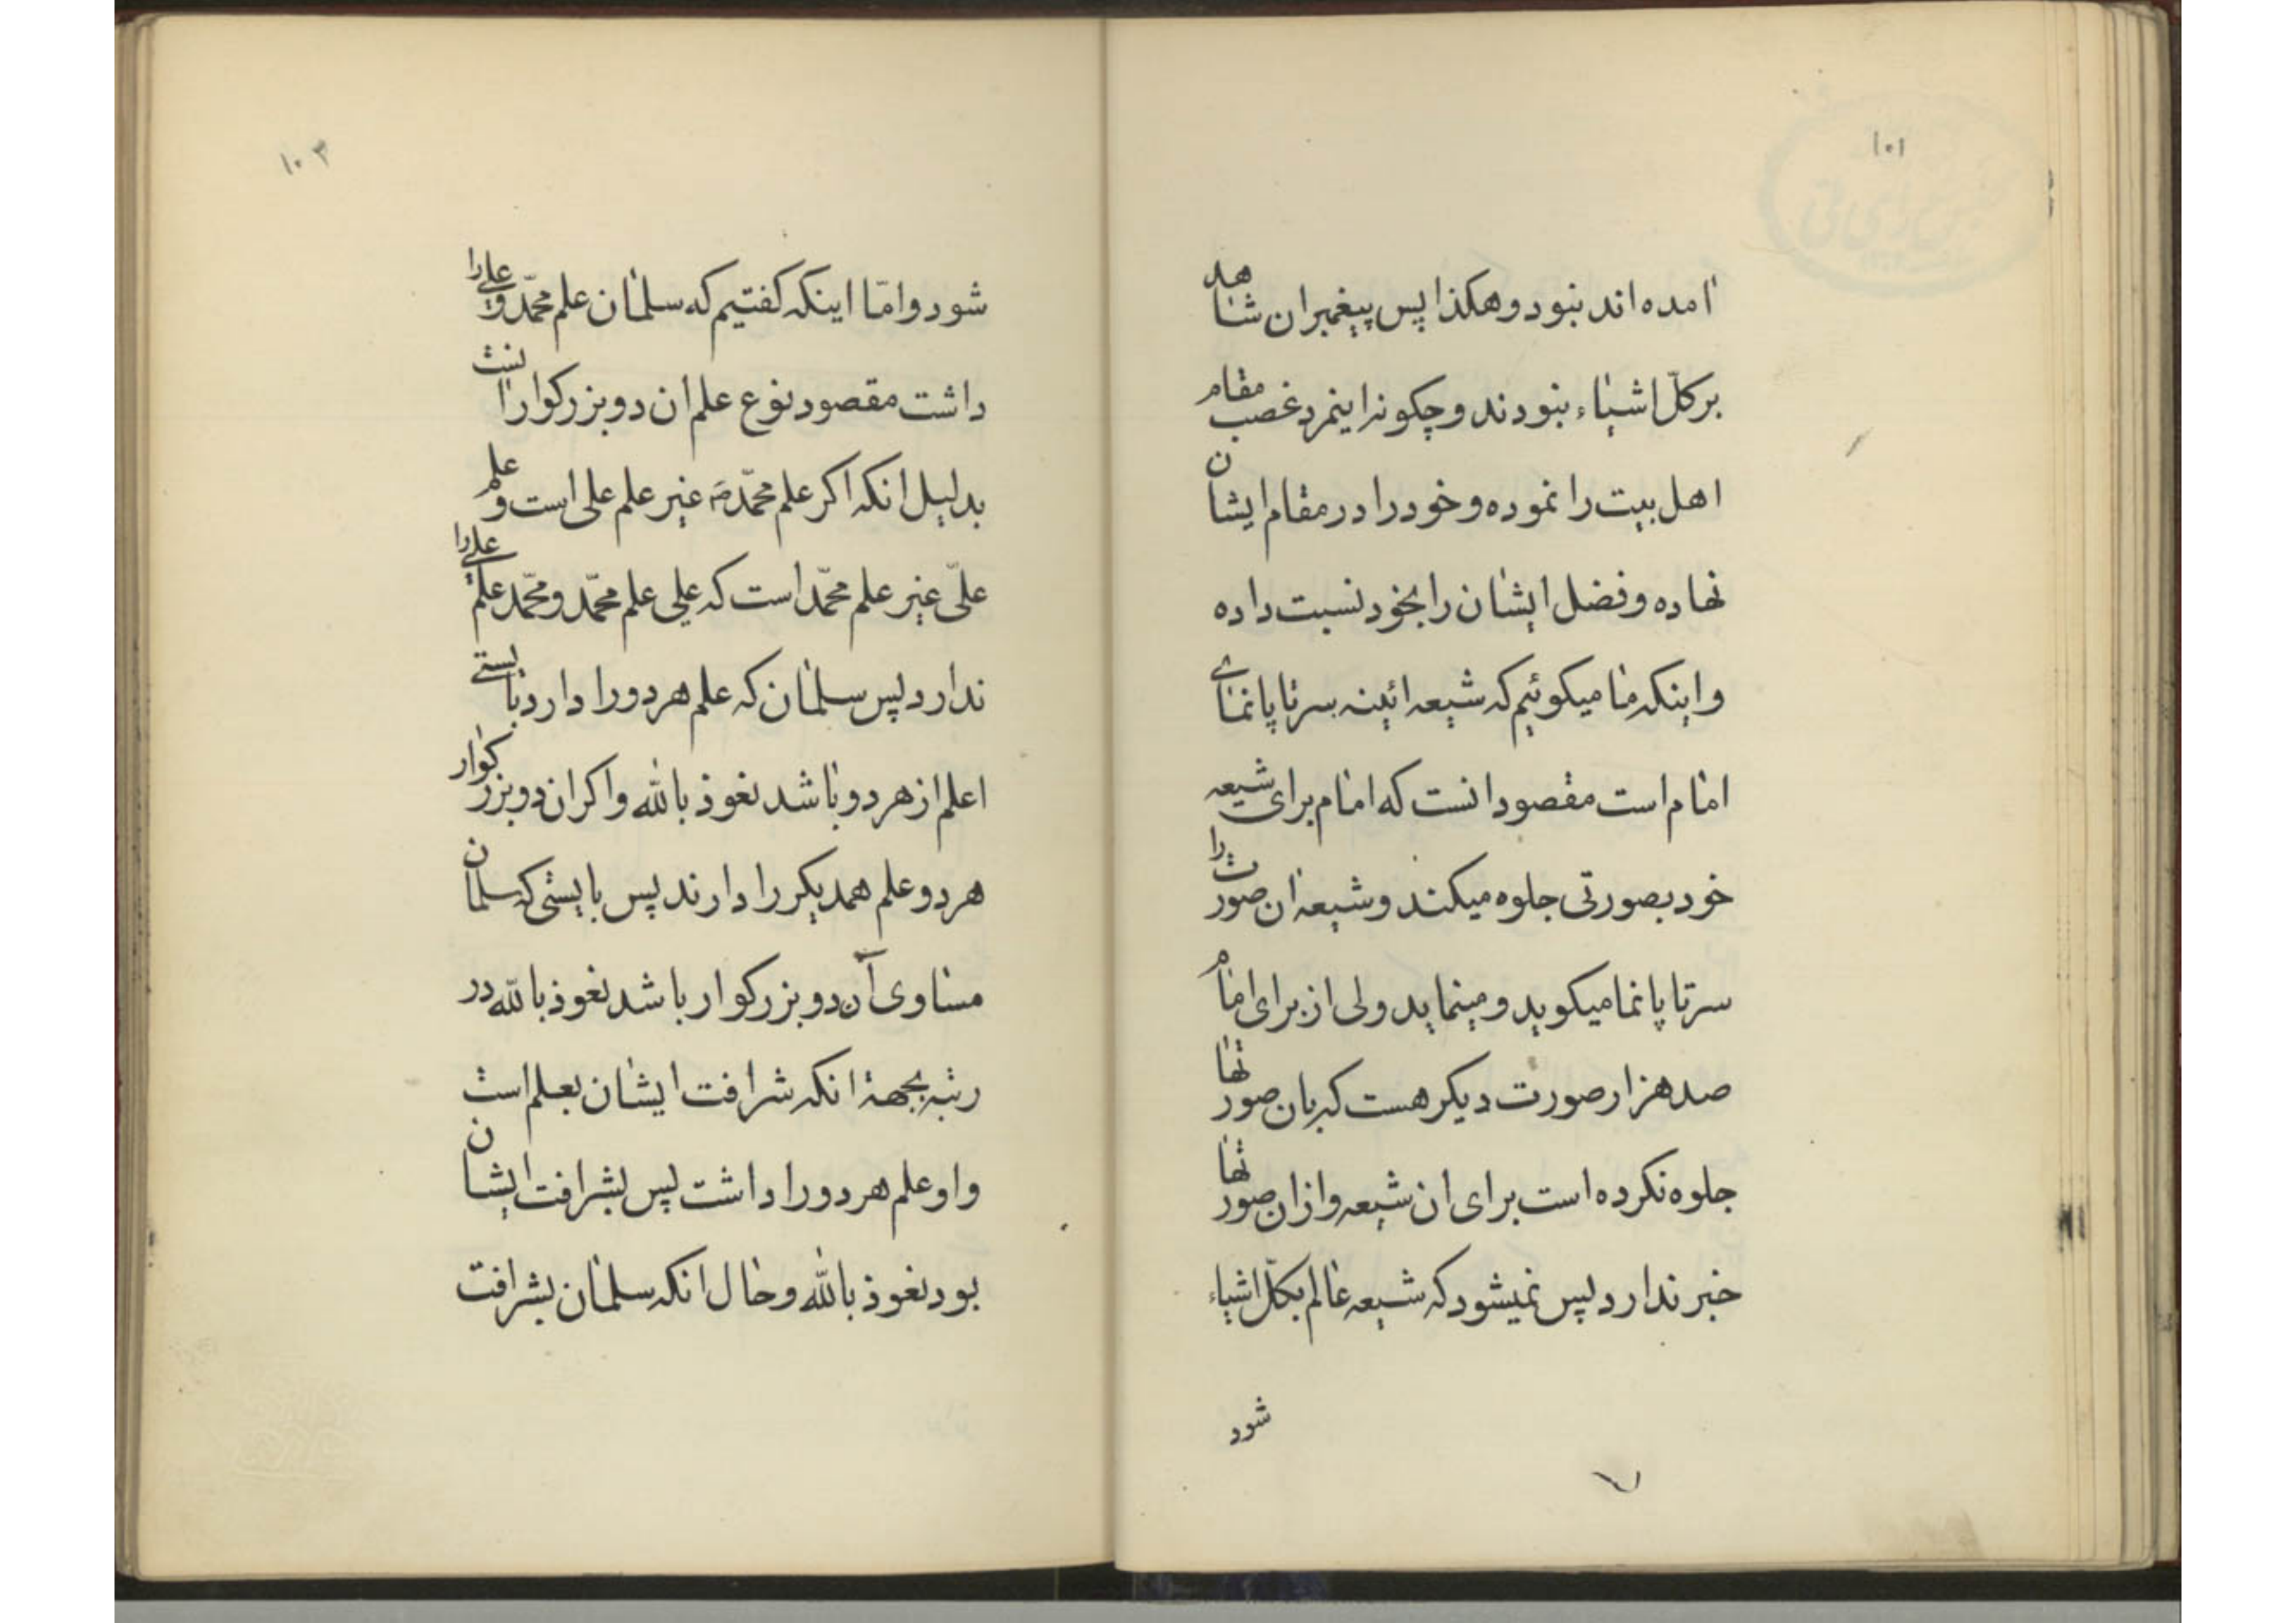 ۱۰۱
امده اند نبود و هکذا پس پیغمبران شاهد
بر کلّ اشیاء نبودند و چکونه اینمرد غصب مقام
اهل بیت را نموده و خود را در مقام ایشان
نهاده و فضل ایشان را بخود نسبت داده
و اینکه ما میکوئیم که شیعه ائینه سر تا پا نمای
امام است مقصود انست که امام برای شیعه
خود بصورتی جلوه میکند و شیعه ان صورت را
سر تا پا نما میکوید و مینماید ولی از برای امام
صد هزار صورت دیکر هست که بان صورتها
جلوه نکرده است برای ان شیعه و از ان صورتها
خبر ندارد پس نمیشود که شیعه عالم بکلّ اشیاء
شود
۱۰۳
شود و امّا اینکه کفتیم که سلمان علم محمّد و علی را
داشت مقصود نوع علم ان دو بزرکوار است
بدلیل انکه اکر علم محمّد ص غیر علم علی است و علم
علیّ غیر علم محمّد است که علی علم محمّد و محمّد علم علی را
ندارد پس سلمان که علم هر دو را دارد بایستی
اعلم از هر دو باشد نعوذ بالله و اکر ان دو بزرکوار
هر دو علم همدیکر را دارند پس بایستی که سلمان
مساوی آن دو بزرکوار باشد نعوذ بالله در
رتبه بجهة انکه شرافت ایشان بعلم است
و او علم هر دو را داشت پس بشرافت ایشان
بود نعوذ بالله و حال انکه سلمان بشرافت